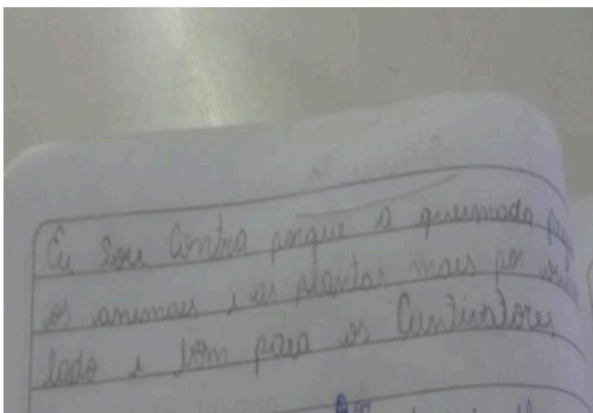 Eu sou contra porque a queimada
os animais e as plantas mais por
lado e bom para os Cuntivatores